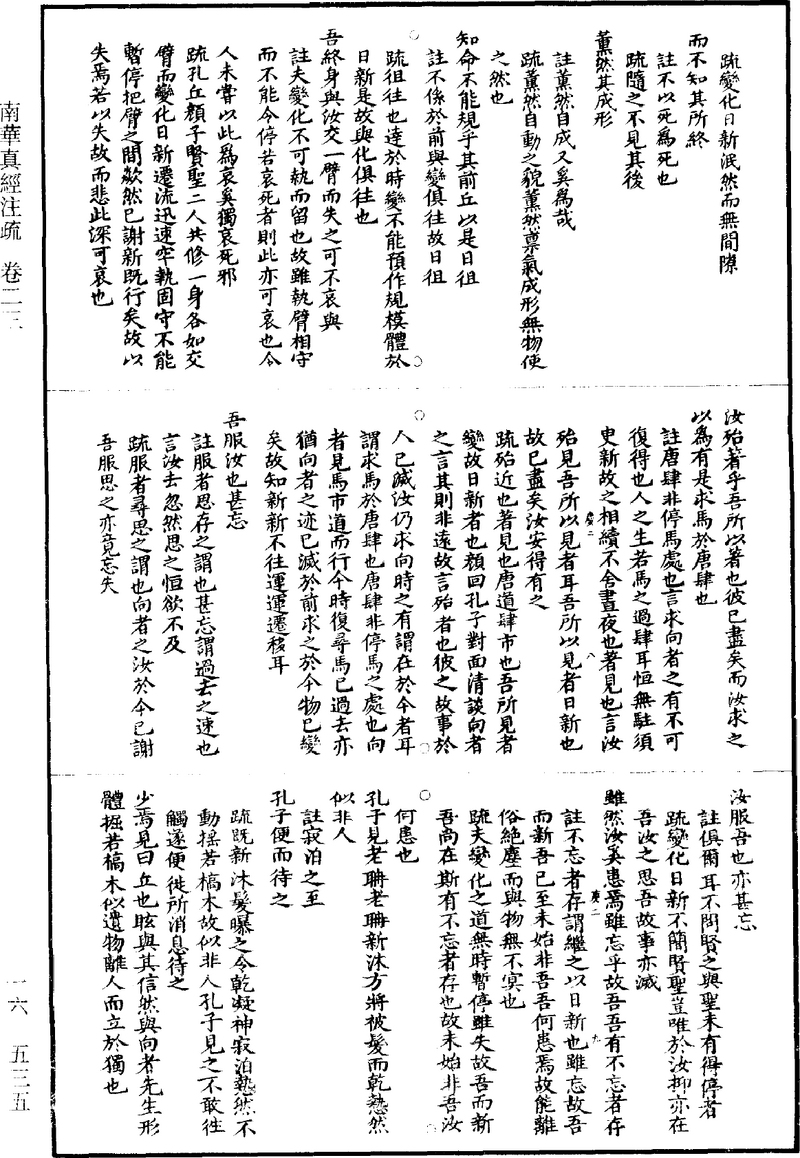 南華真經注疏　卷二三
一六　五三五
疏變化日新泯然而無間隙
而不知其所終
註不以死為死也
疏隨之不見其後
薰然其成形
註薰然自成又奚為哉
疏薰然自動之貌薰然稟氣成形無物使
之然也
知命不能規乎其前丘以是日徂
註不係於前與變俱往故日徂
疏徂往也達於時變不能預作規模體於
日新是故與化俱往也
吾終身與汝交一臂而失之可不哀與
註夫變化不可執而留也故雖執臂相守
而不能令停若哀死者則此亦可哀也今
人未嘗以此為哀奚獨哀死邪
疏孔丘顏子賢聖二人共修一身各如交
臂而變化日新遷流迅速牢執固守不能
暫停把臂之間欻然已謝新既行矣故以
失焉若以失故而悲此深可哀也
汝殆著乎吾所以著也彼已盡矣而汝求之
以為有是求馬於唐肆也
註唐肆非停馬處也言求向者之有不可
復得也人之生若馬之過肆耳恒無駐須
史新故之相續不舍晝夜也著見也言汝
殆見吾所以見者耳吾所以見者日新也
故已盡矣汝安得有之
疏殆近也著見也唐道肆市也吾所見者
變故日新者也顏回孔子對面清談向者
之言其則非遠故言殆者也彼之故事於
人已滅汝仍求向時之有謂在於今者耳
謂求馬於唐肆也唐肆非停馬之處也向
者見馬市道而行今時復尋馬已過去亦
猶向者之迹已滅於前求之於今物已變
矣故知新新不往運運遷移耳
吾服汝也甚忘
註服者思存之謂也甚忘謂過去之速也
言汝去忽然思之恒欲不及
疏服者尋思之謂也向者之汝於今已謝
吾服思之亦竟忘失
汝服吾也亦甚忘
註俱爾耳不問賢之與聖未有得停者
疏變化日新不簡賢聖豈唯於汝抑亦在
吾汝之思吾故事亦滅
雖然汝奚患焉雖忘乎故吾吾有不忘者存
註不忘者存謂繼之以日新也雖忘故吾
而新吾已至未始非吾吾何患焉故能離
俗絕塵而與物無不冥也
疏夫變化之道無時暫停雖失故吾而新
吾尚在斯有不忘者存也故未始非吾汝
何患也
孔子見老聃老聃新沐方將被髮而乾慹然
似非人
註寂泊之至
孔子便而待之
疏既新沐髮曝之令乾凝神寂泊慹然不
動搖若槁木故似非人孔子見之不敢往
觸遂便徙所消息待之
少焉見曰丘也眩與其信然與向者先生形
體掘若槁木似遺物離人而立於獨也